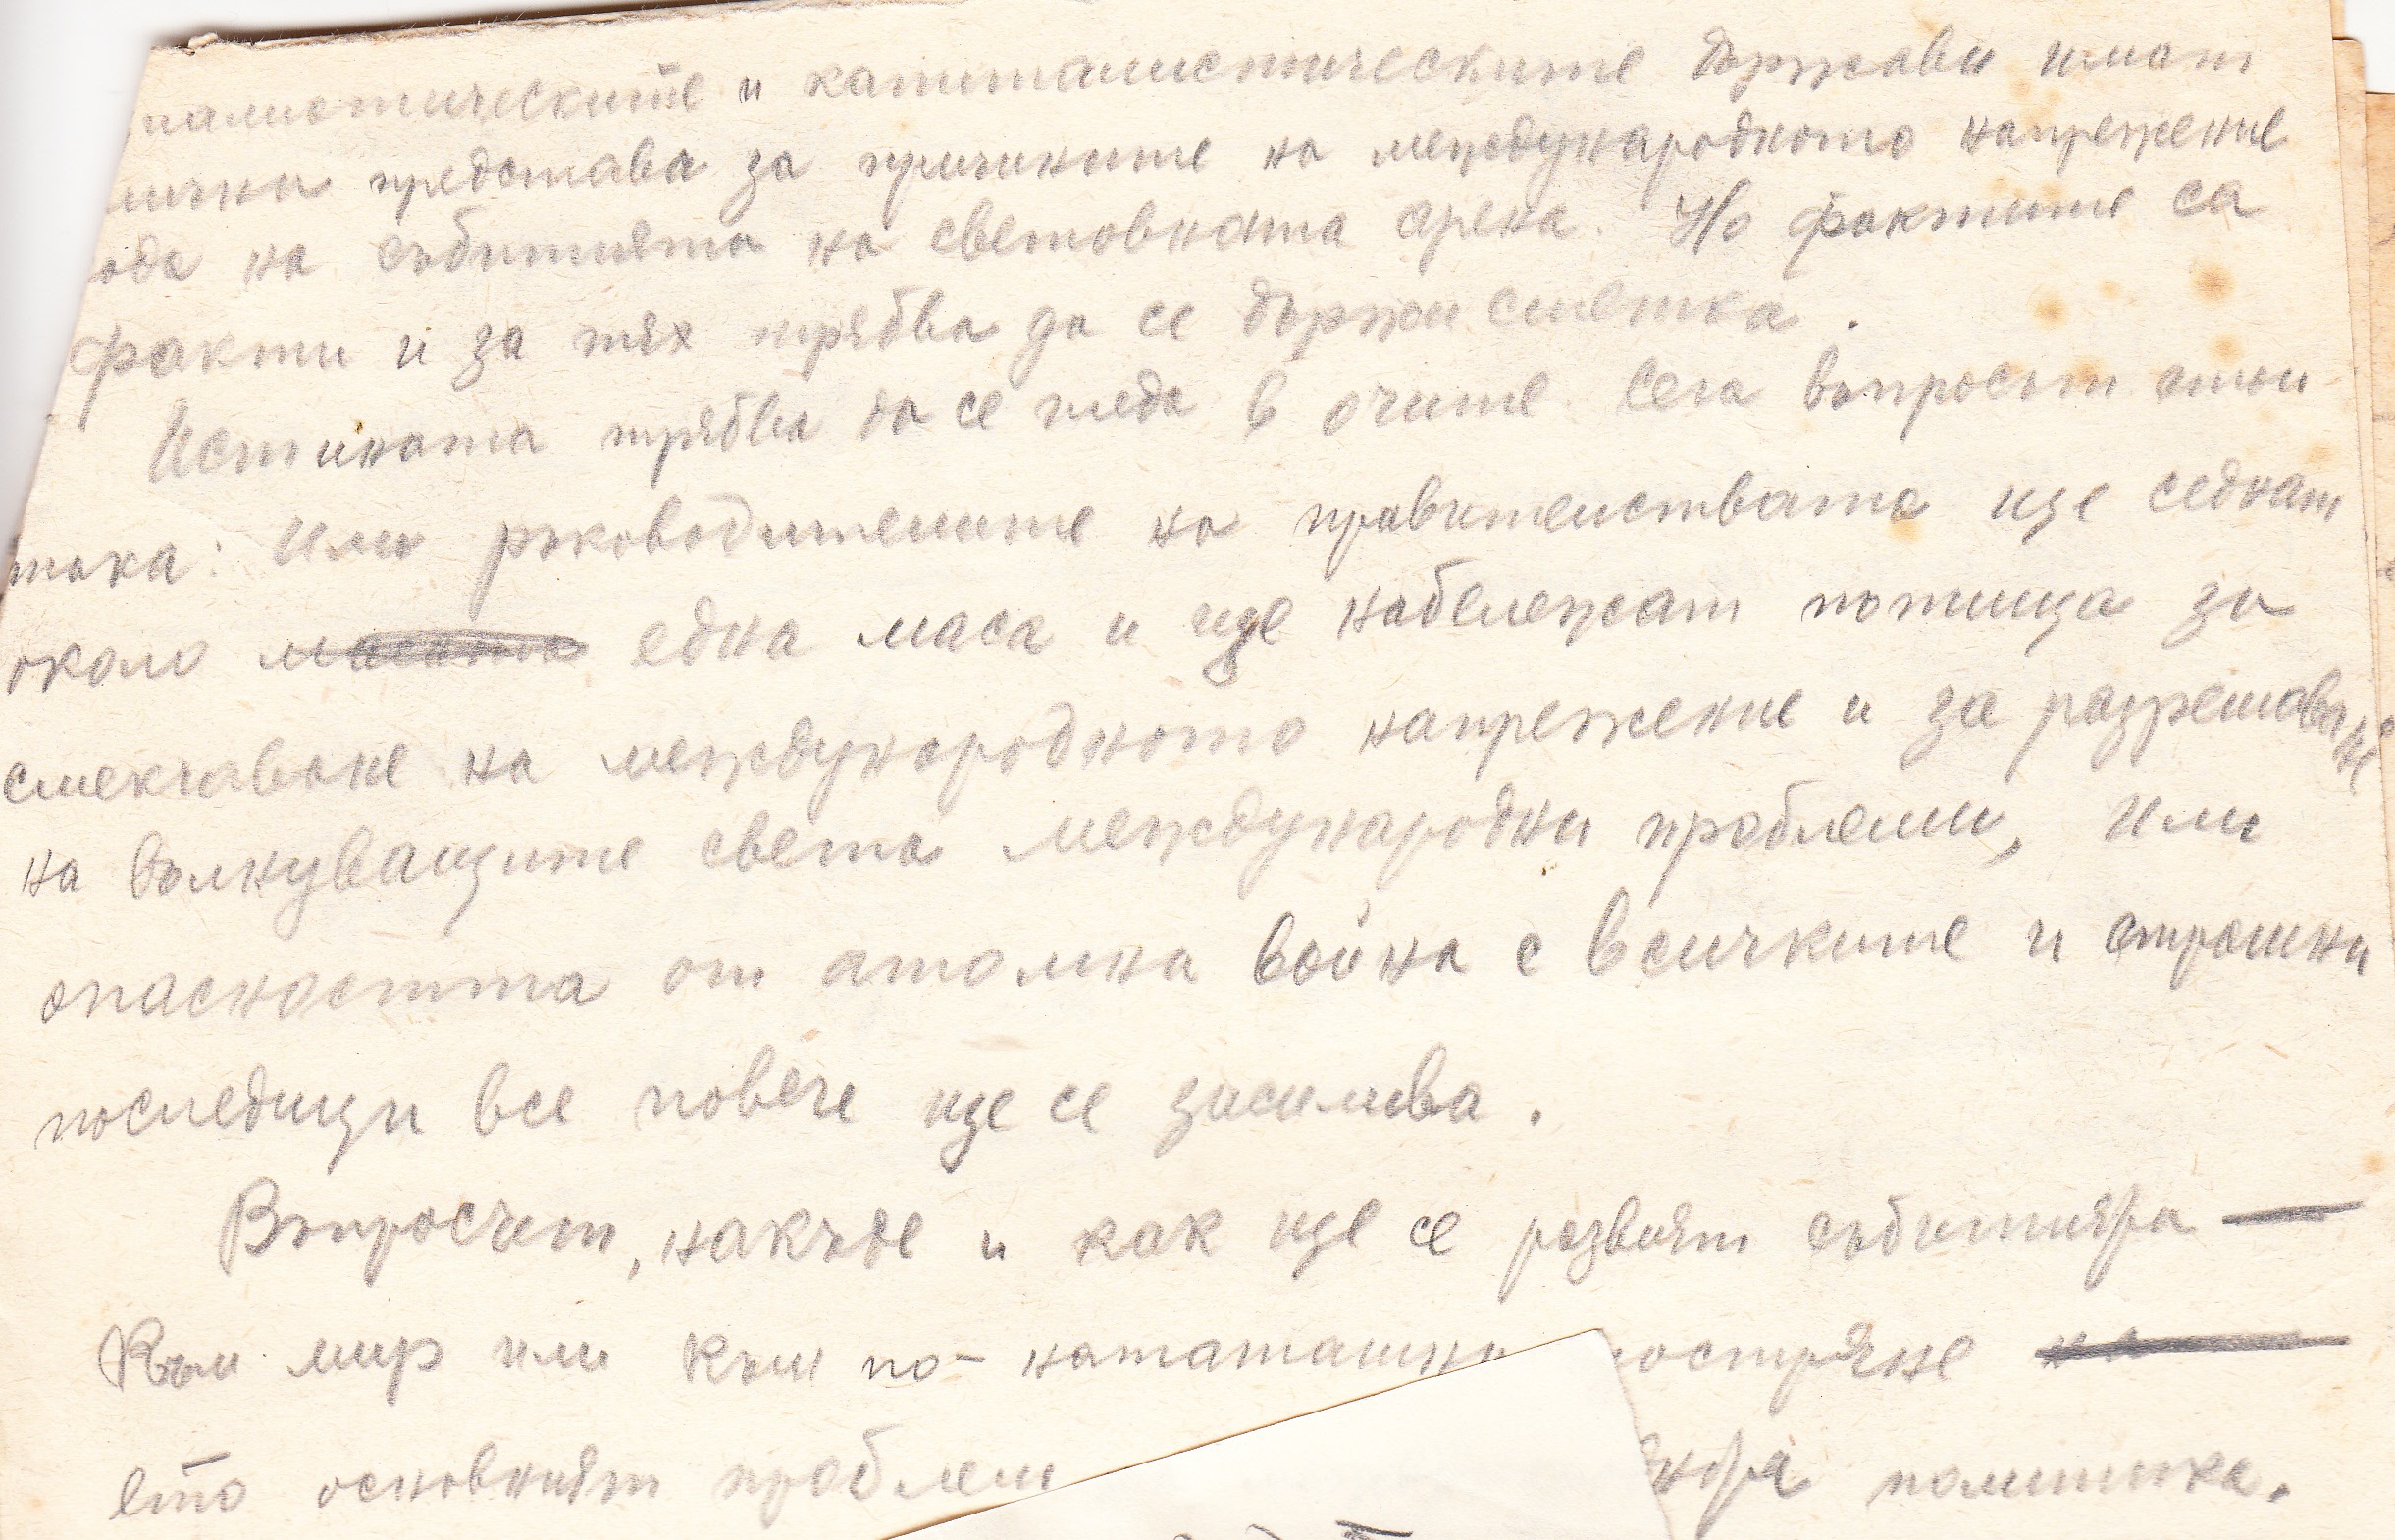 циалистическите и капиталистическите държави имат
лична представа за причините на международното напрежение
хода на събитията на световната арена. Но фактите са
факти и за тях трябва да се държи сметка.
Истината трябва да се гледа в очите. Сега въпросът стои
така: Или ръководителите на правителствата ще седнат
около една маса и ще набележат пътища за
смекчаване на международното напрежение и за разрешаване
на вълнуващите света международни проблеми, Или
опасността от атомна война с всичките и страшни
последици все повече ще се засилва.
Въпросът, накъде и как ще се развият събитията —
Към мир или към по-нататашно остряне
ето основният проблем политика.